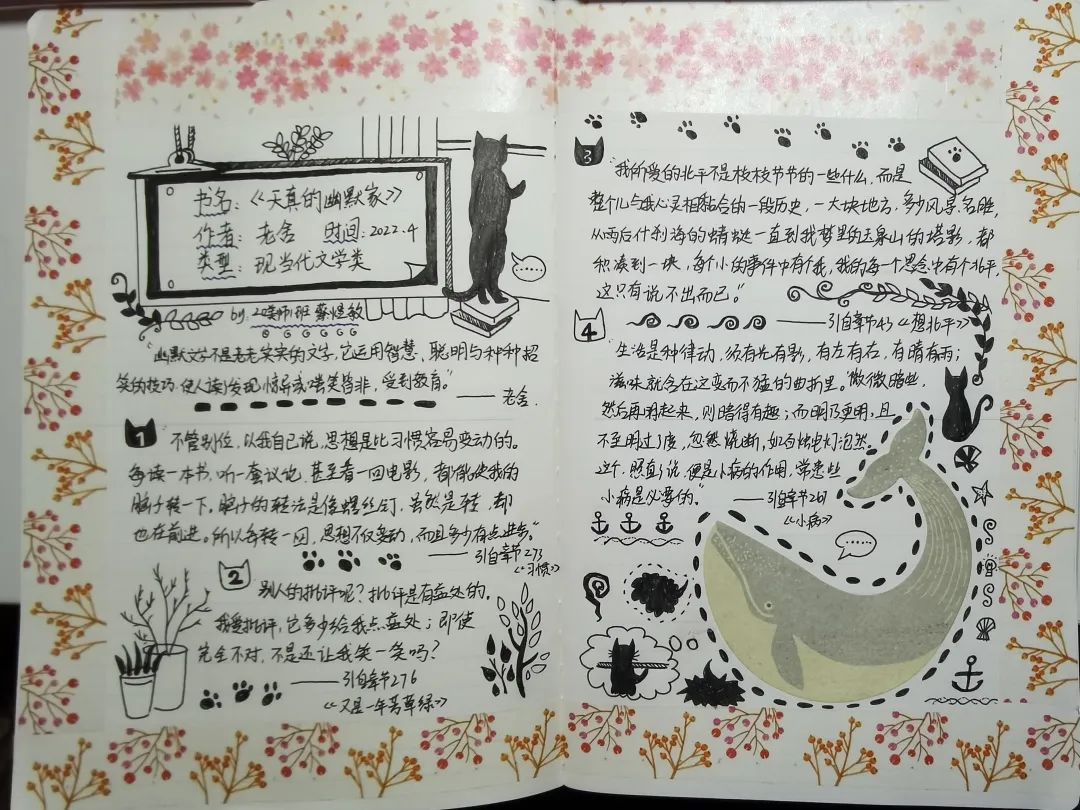 书名：《天真的幽默家》
作者：老舍 时间：2022.4
类型：现当代文学类
by:
“幽默文字不是老老实实的文字，它运用智慧，聪明与种种招
笑的技巧，使人读了发现惊异或啼笑皆非，受到教育。”
——老舍.
1 “不管别位，以我自己说，思想是比习惯容易变动的。
每读一本书，听一套议论，甚至看一回电影，都能使我的
脑子转一下，脑子的转法是像螺丝钉，虽然是转，却
也在前进。所以每转一回，思想不仅变动，而且多少有点进步。”
——引自章节273
《习惯》
2 别人的批评呢？批评是有益处的。
我爱批评，它多少给我点益处；即使
完全不对，不是还让我笑一笑吗？
——引自章节276
《又是一年芳草绿》
3 “我所爱的北平不是枝枝节节的一些什么，而是
整个儿与我心灵相黏合的一段历史，一大块地方，多少风景名胜，
从雨后什刹海的蜻蜓一直到我梦里的玉泉山的塔影，都
积凑到一块，每个小的事件中有个我，我的每一个思念中有个北平，
这只有说不出而已。”
——引自章节43《想北平》
4 “生活是种律动，须有光有影，有左有右，有晴有雨；
滋味就含在这变而不猛的曲折里。”微微暗些，
然后再明起来，则暗得有趣；而明乃更明，且
不至明过了度，忽然烧断，如电烛电灯泡然。
这个，照直了说，便是小病的作用，常患些
小病是必要的。”
——引自章节261
《小病》